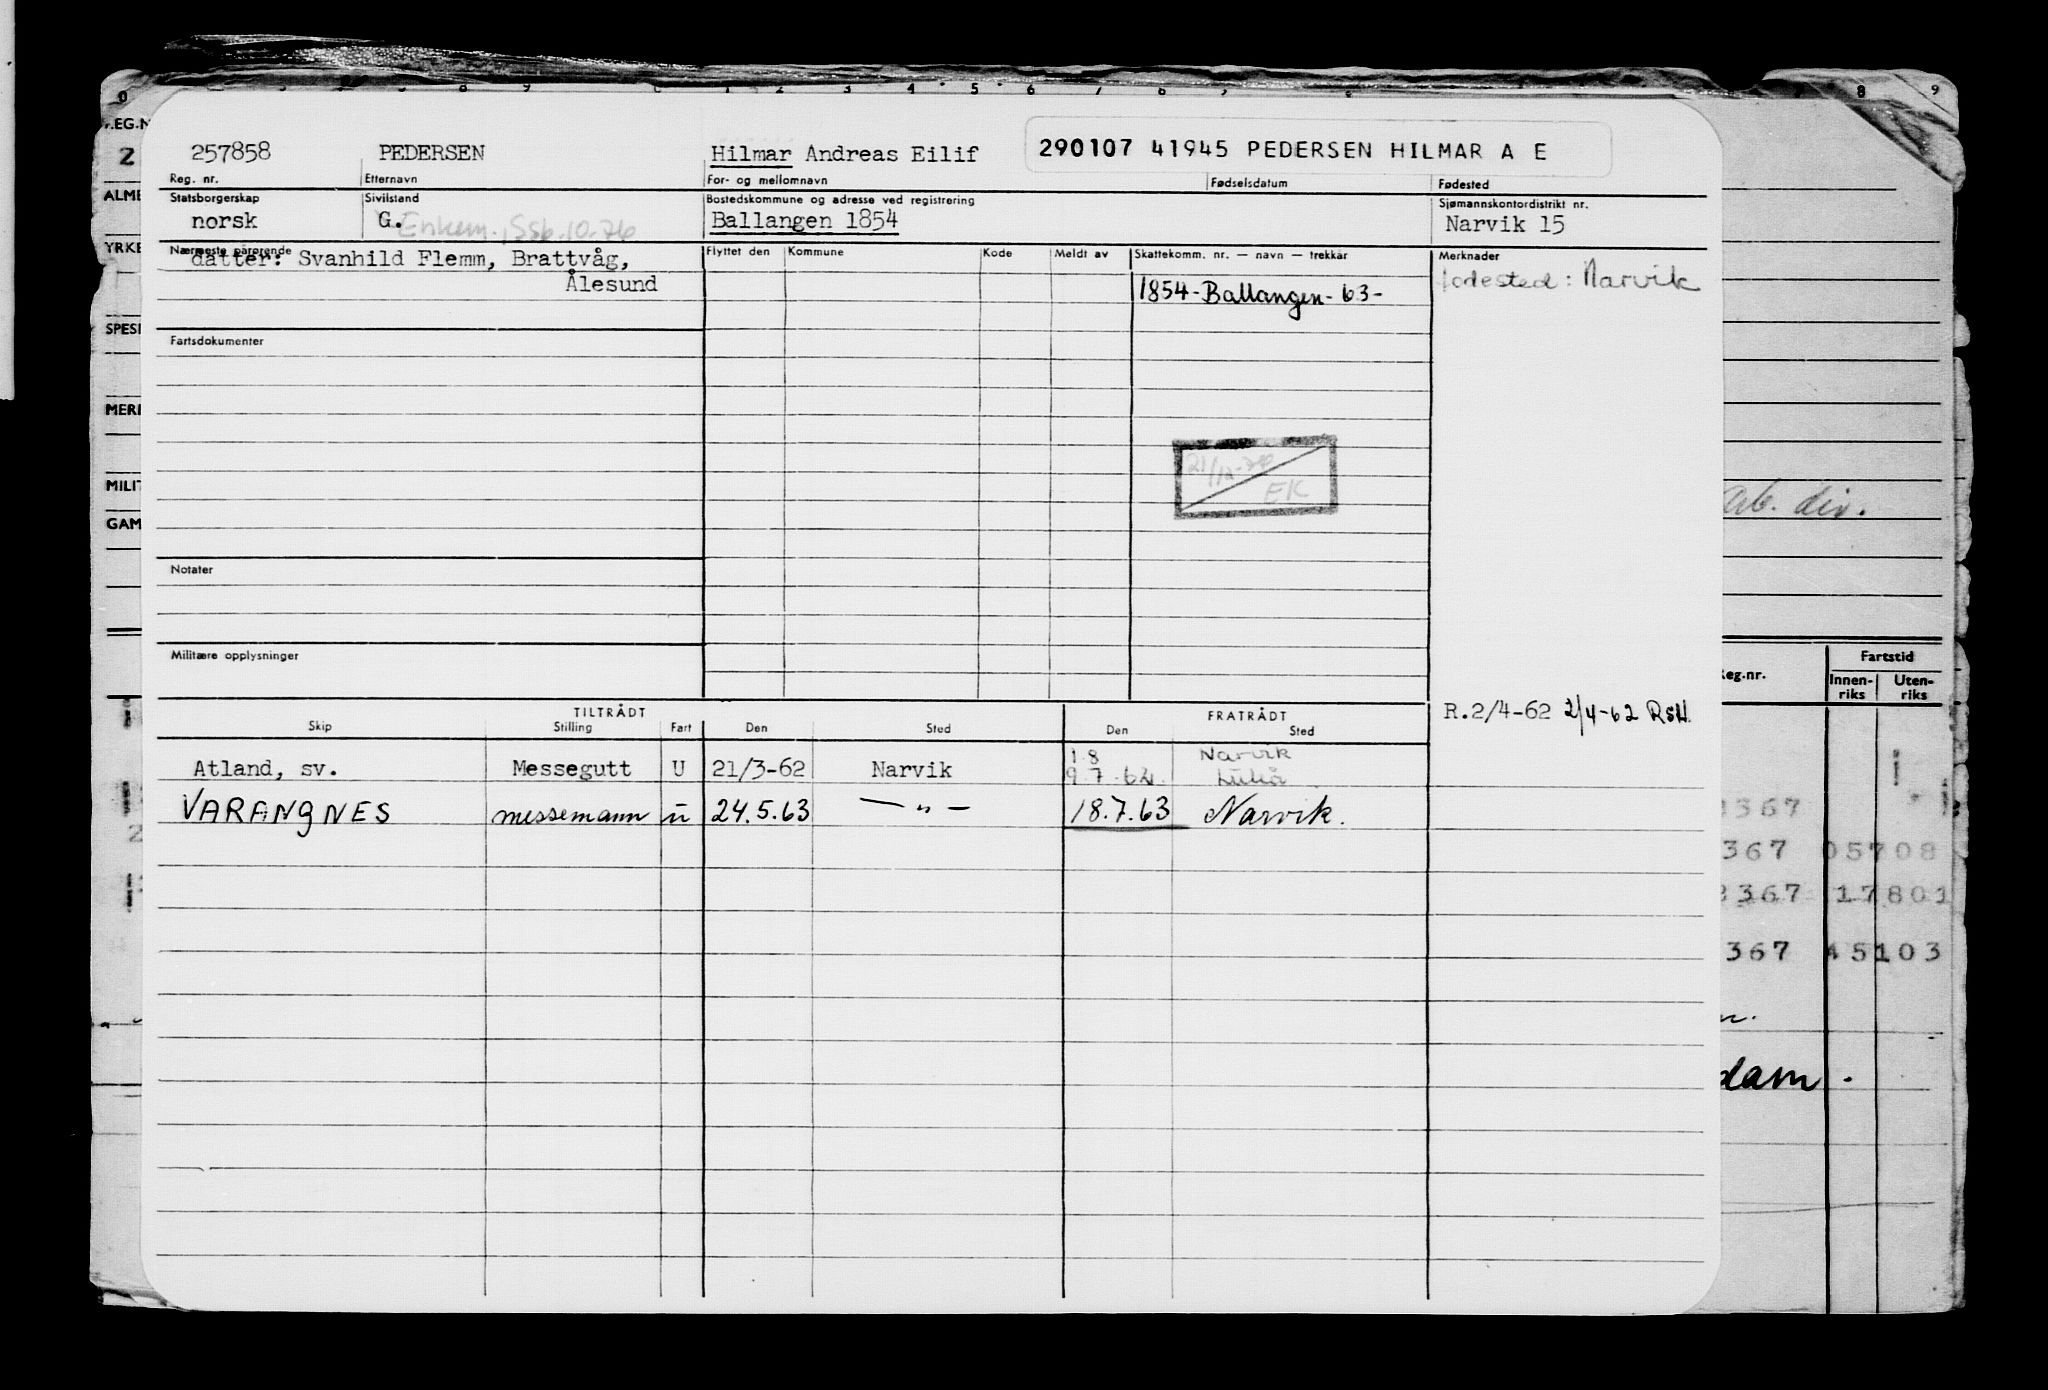 257858 PEDERSEN Hilmar Andreas Eilif 290107 41945 PEDERSEN HILMAR A E
Reg. nr. Etternavn For- og mellomnavn Fødselsdatum Fødested
Statsborgerskap Sivilstand Bostedskommune og adresse ved registrering Sjømannskontordistrikt nr.
norsk G. Enkem. Ssb. 10-76 Ballangen 1854 Narvik 15
Nærmeste pårørende Flyttet den Kommune Kode Meldt av Skattekomm. nr. — navn — trekkår Merknader
datter: Svanhild Flemm, Brattvåg,
Ålesund
1854-Ballangen-63-
fødested: Narvik
Fartsdokumenter
21/12-
EK
Notater
Militære opplysninger
TILTRÅDT FRATRÅDT
Skip Stilling Fart Den Sted Den Sted
R.2/4-62 2/4-62 RsH.
1.8 Narvik
Atland, sv. Messegutt U 21/3-62 Narvik 9.7.62. Luleå
VARANGNES messemann u 24.5.63 — " — 18.7.63 Narvik.
REG.N
2
ALME
YRKE
SPESI
MERI
MILIT
GAM
ab. div.
Reg.nr. Fartstid
Innen-riks Uten-riks
367
367 05708
367 17801
367 45103
dam.